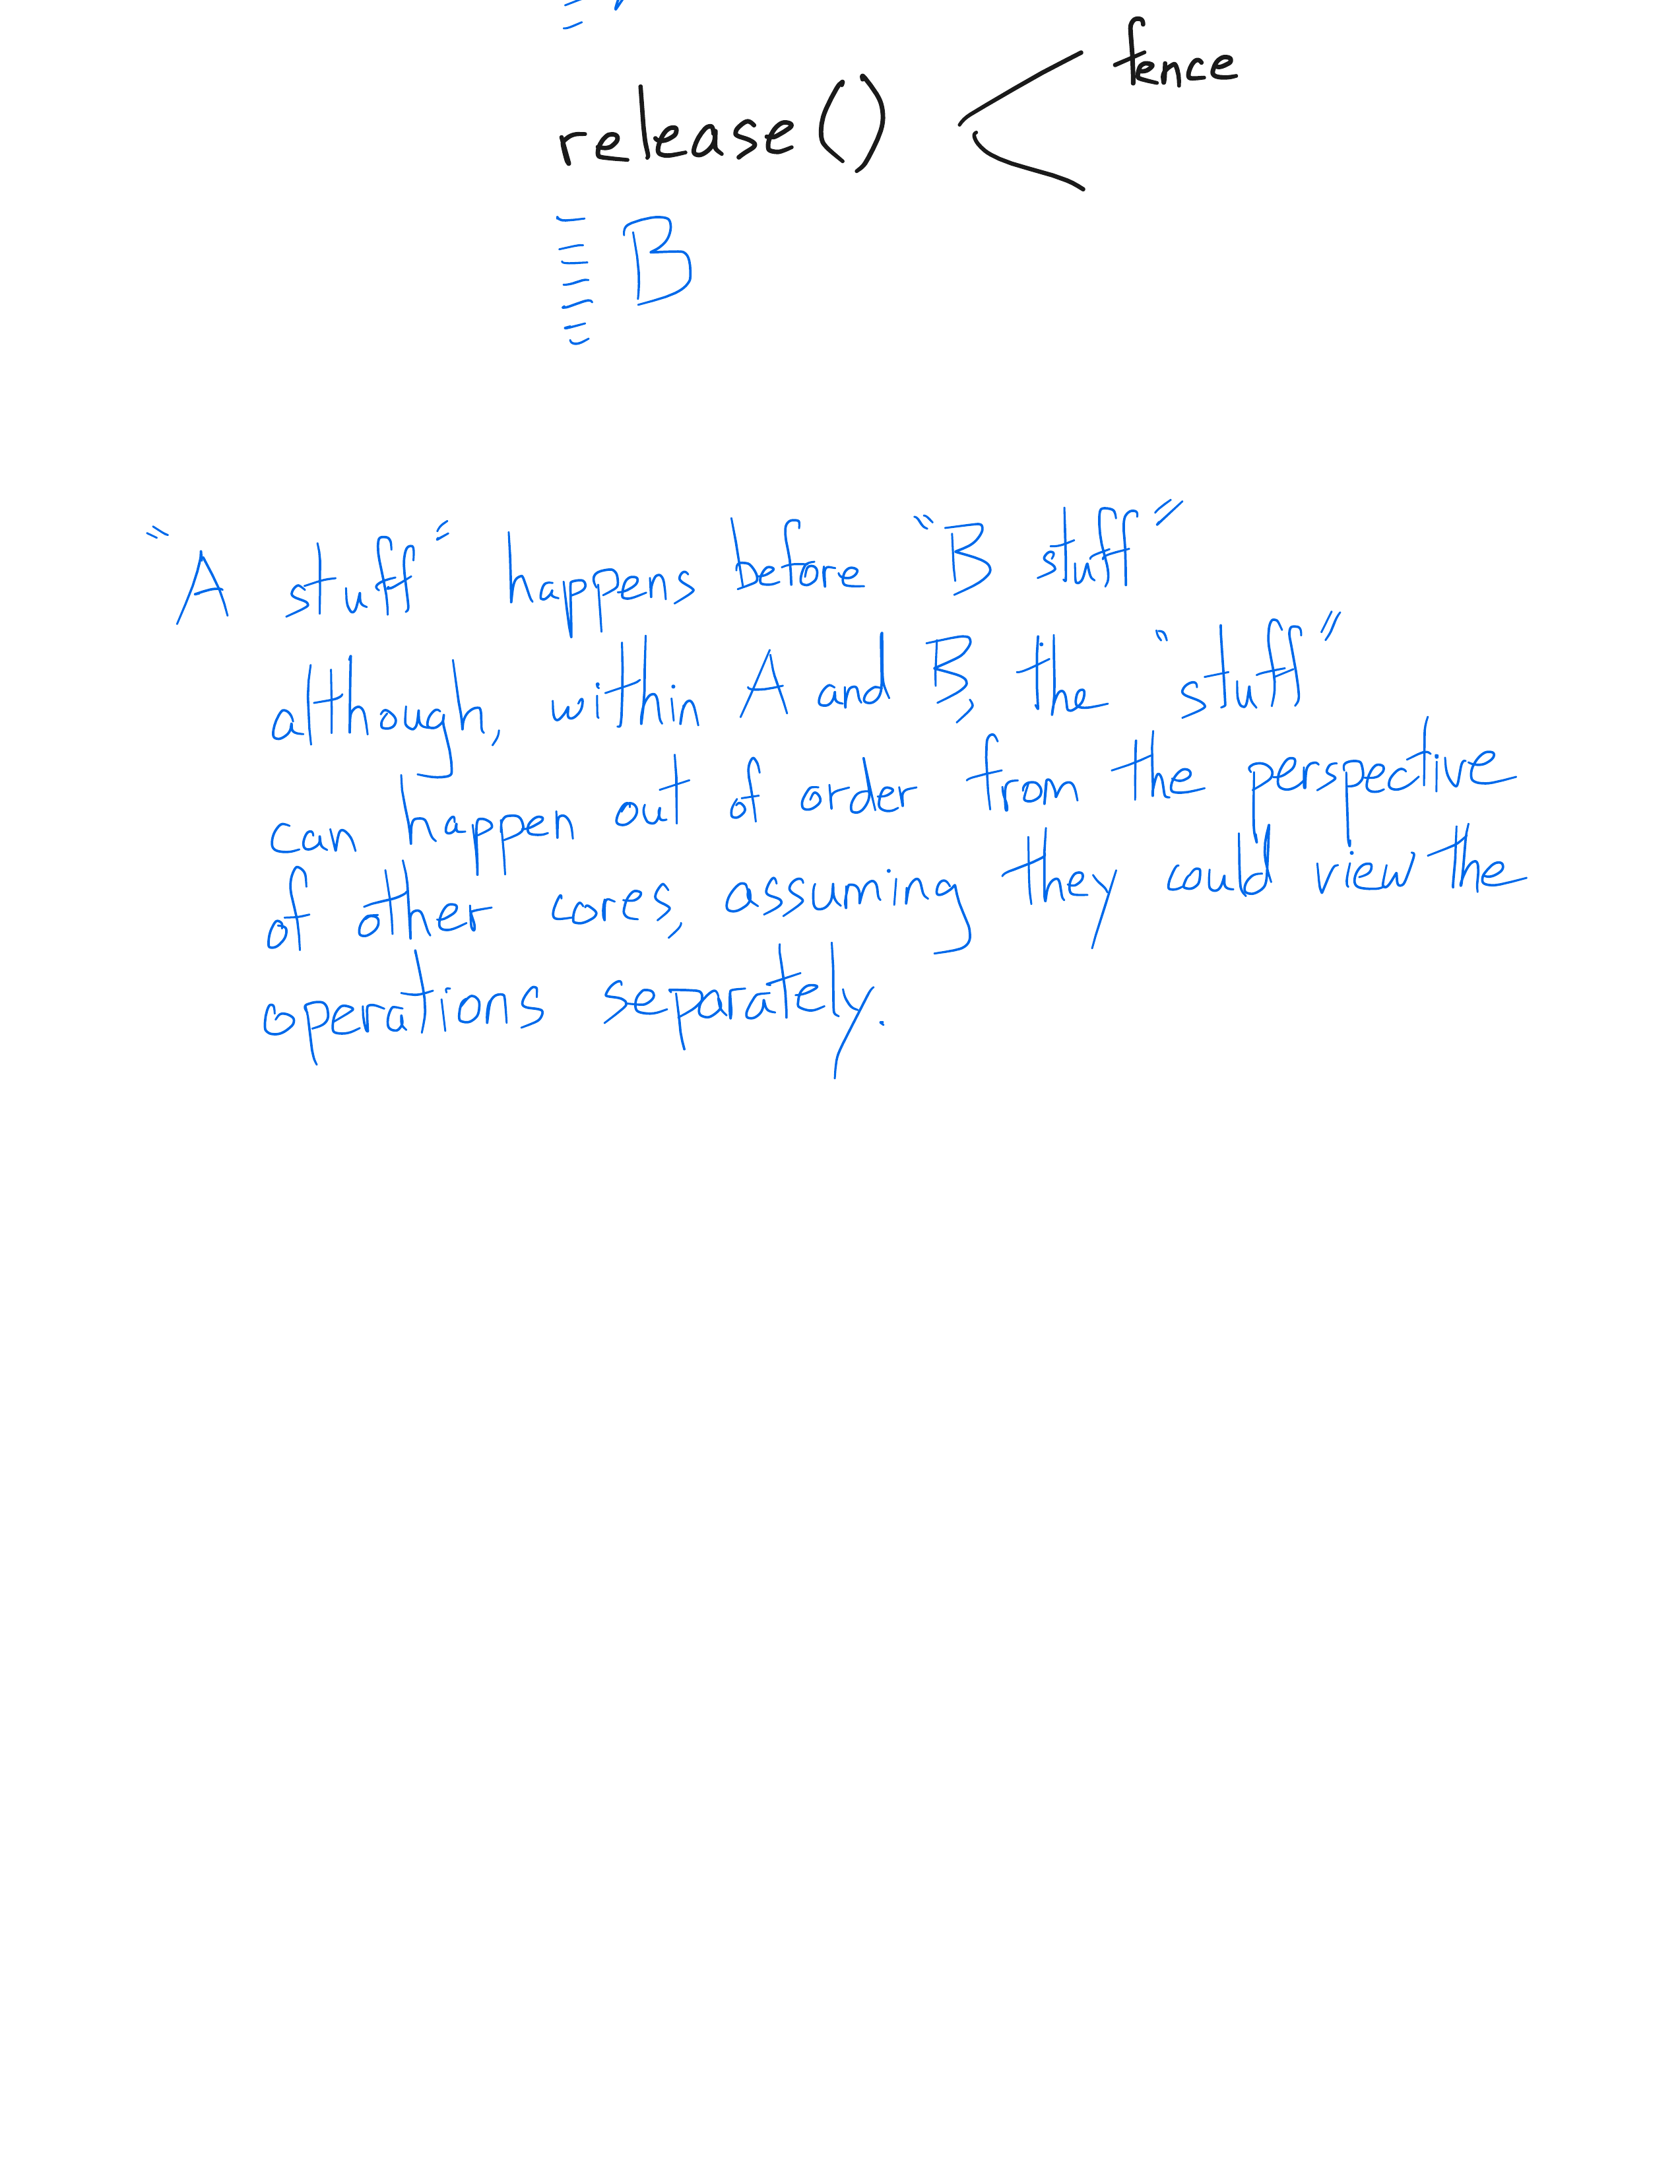 fence
release()
B
"A stuff" happens before "B stuff"
although, within A and B, the "stuff"
can happen out of order from the perspective
of other cores, assuming they could view the
operations separately.